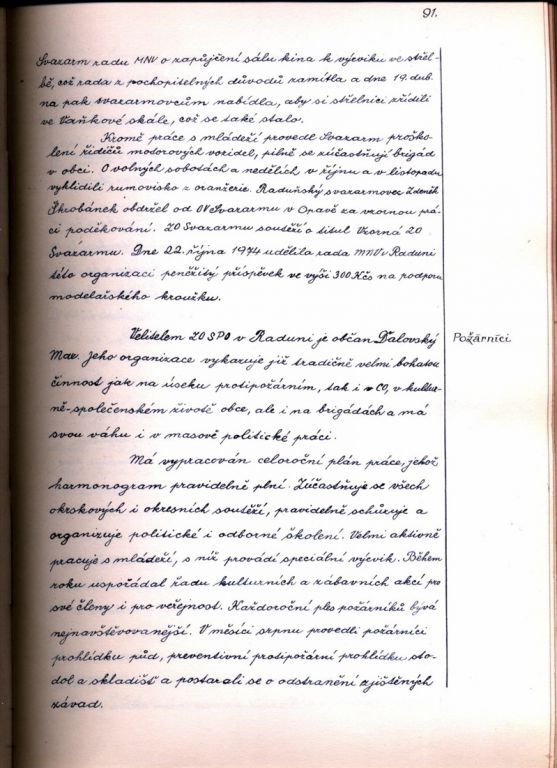 91.
Svazarm radu MNV o zapůjčení sálu kina k výcviku ve střel-
bě, což rada z pochopitelných důvodů zamítla a dne 19. dub-
na pak svazarmovcům nabídla, aby si střelnici zřídili
ve Vaňkové skále, což se také stalo.
Kromě práce s mládeží provedl Svazarm proško-
lení řidičů modorových vozidel, pilně se zúčastňují brigád
v obci. O volných sobotách a nedělích v říjnu a v listopadu
vyklidili rumovisko z oranžerie. Raduňský svazarmovec Zdeněk
Škrobánek obdržel od OV Svazarmu v Opavě za vzornou prá-
ci poděkování. ZO Svazarmu soutěží o titul Vzorná ZO
Svazarmu. Dne 22. října 1974 udělila rada MNV v Raduni
této organizaci peněžitý příspěvek ve výši 300 Kčs na podporu
modelářského kroužku.
Velitelem ZO SPO v Raduni je občan Ďalovský
Max. Jeho organizace vykazuje již tradičně velmi bohatou
činnost jak na úseku protipožárním, tak i v CO, v kultur-
ně-společenském životě obce, ale i na brigádách a má
svou váhu i v masově politické práci.
Požárníci
Má vypracován celoroční plán práce, jehož
harmonogram pravidelně plní. Zúčastňuje se všech
okrskových i okresních soutěží, pravidelně schůzuje a
organizuje politické i odborné školení. Velmi aktivně
pracuje s mládeží, s níž provádí speciální výcvik. Během
roku uspořádal řadu kulturních a zábavních akcí pro
své členy i pro veřejnost. Každoroční ples požárníků bývá
nejnavštěvovanější. V měsíci srpnu provedli požárníci
prohlídku půd, preventivní protipožární prohlídku sto-
dol a skladišť a postarali se o odstranění zjištěných
závad.